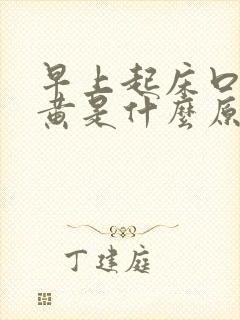 早上起床口
黄是什麼原
丁建庭